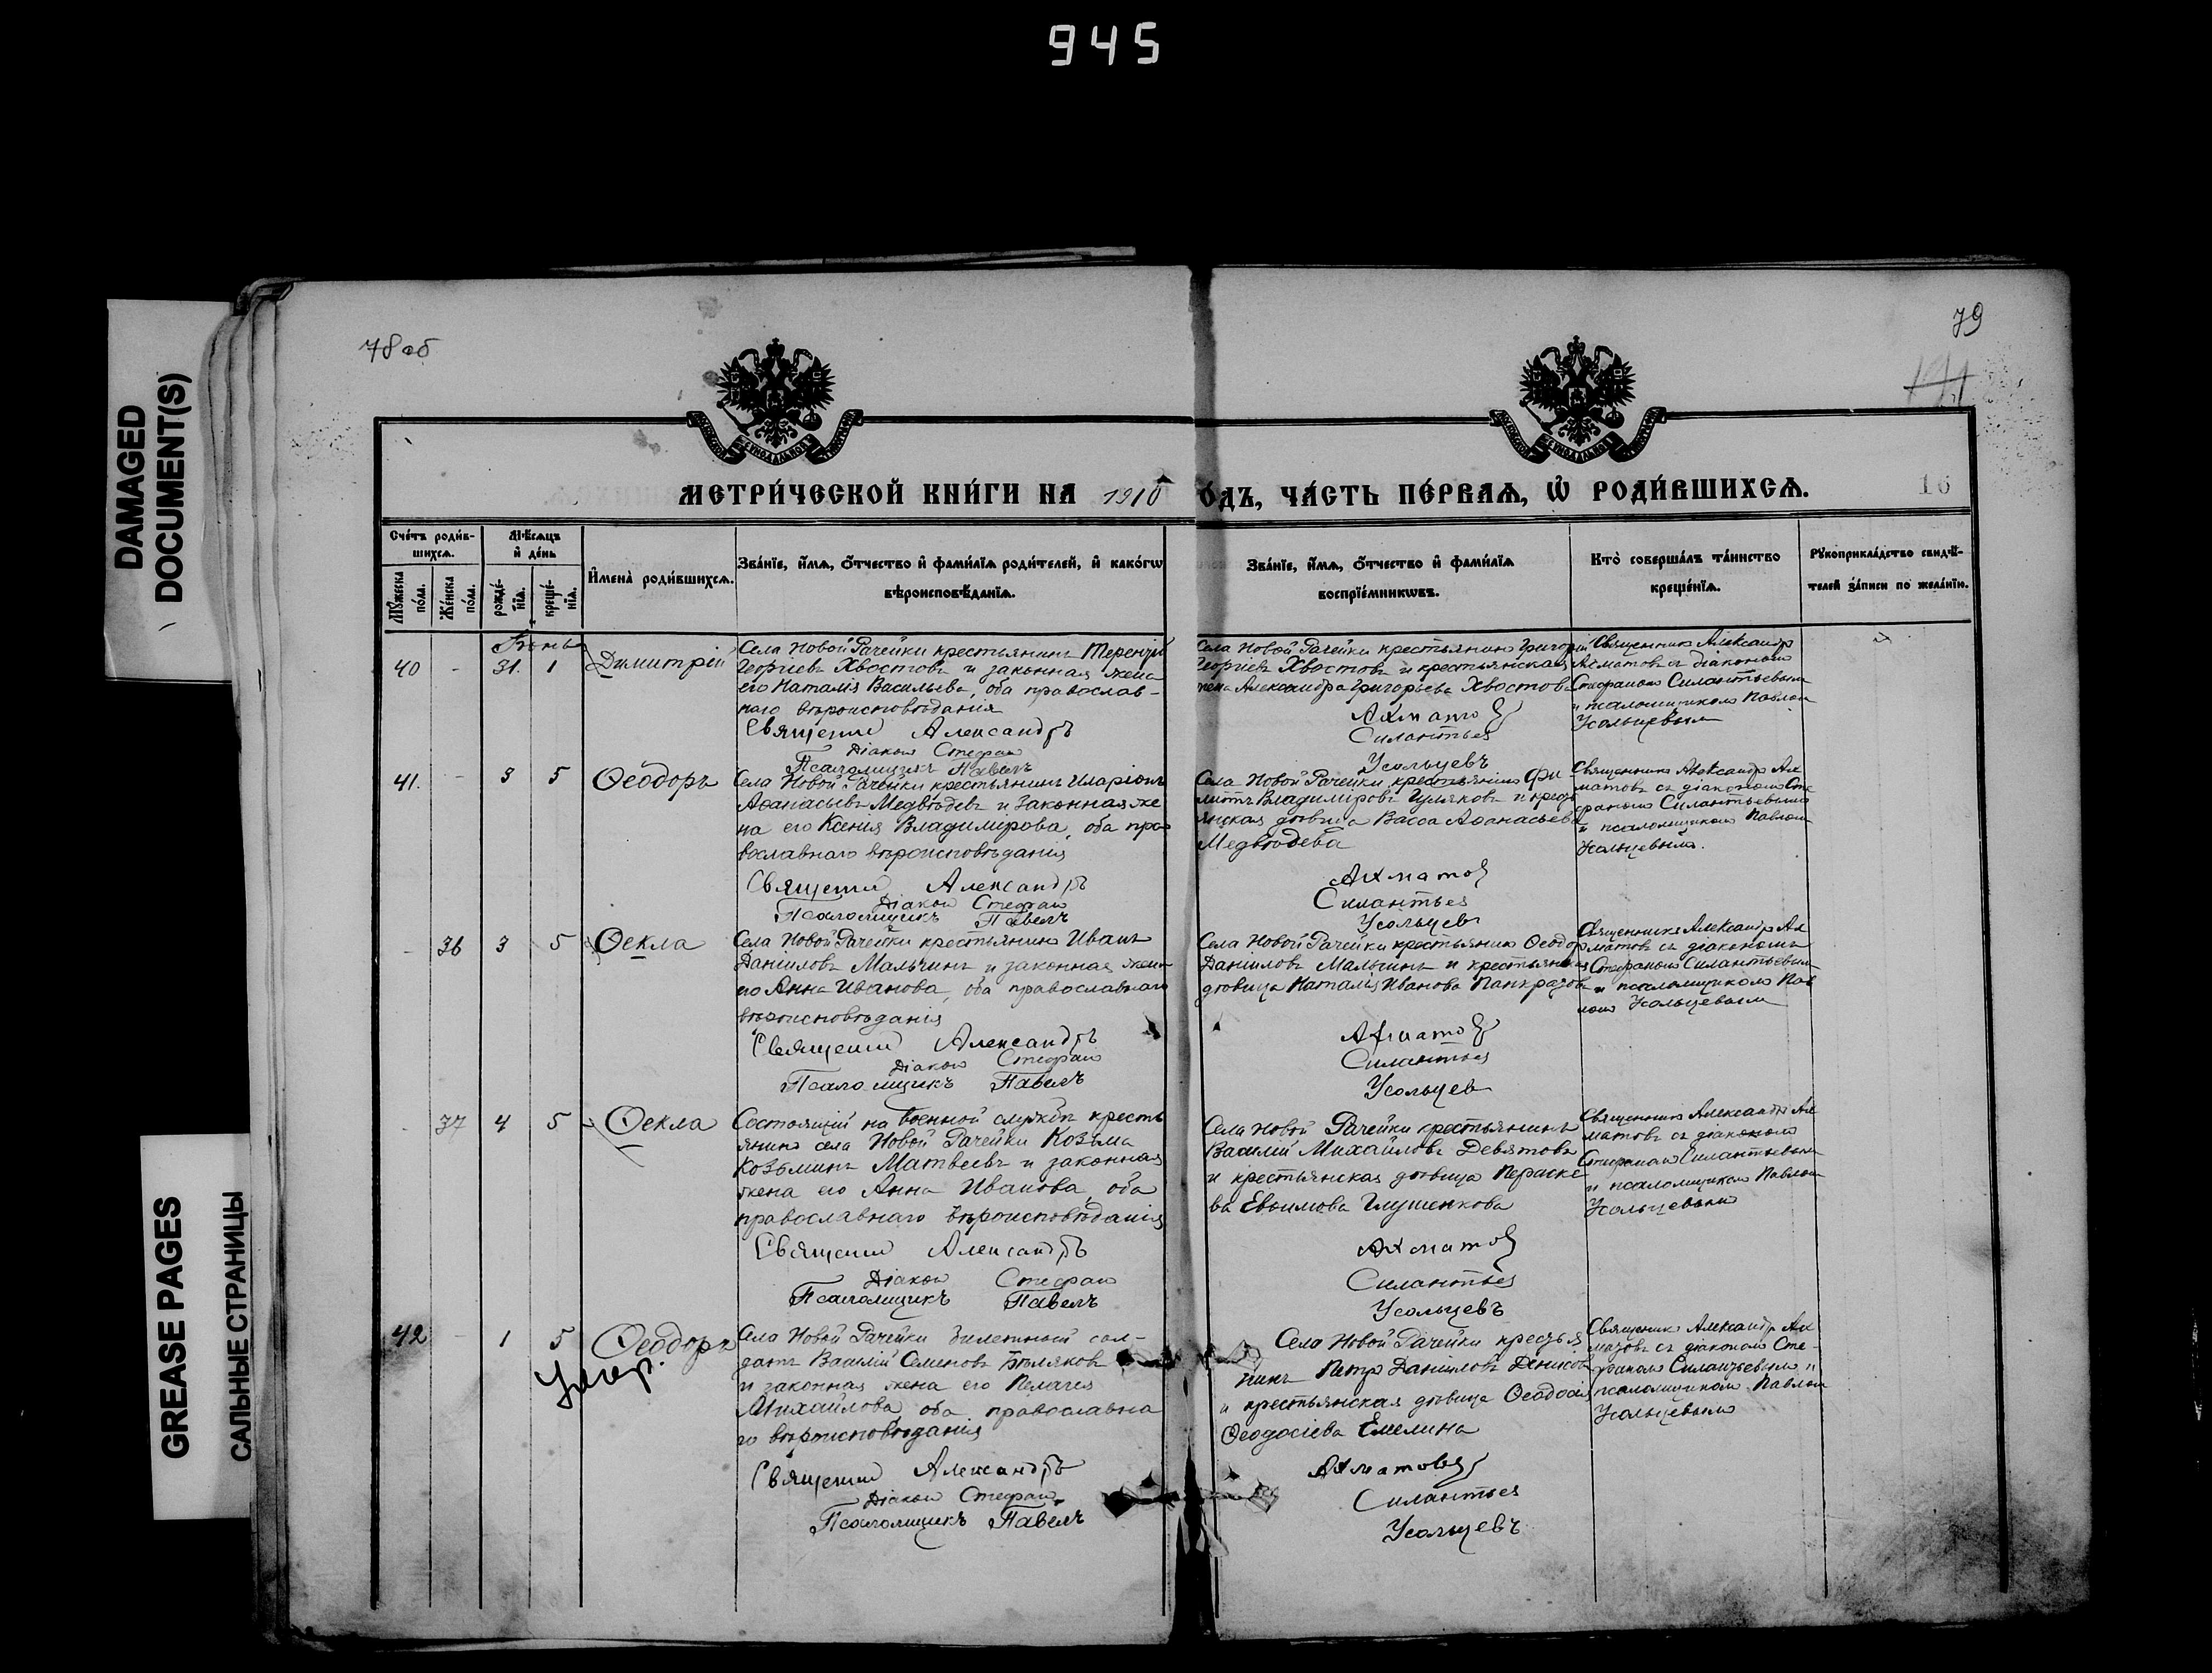 945
DAMAGED
DOCUMENT(S)
GREASE PAGES
САЛЬНЫЕ СТРАНИЦЫ
78 об
79
16
МЕТРИ́ЧЕСКОЙ КНИ́ГИ НА 1910
О́ДЪ, ЧА́СТЬ ПЕ́РВАѦ, Ѡ҆ РОДИ́ВШИХСѦ.
Сче́тъ роди́в-
шихсѧ.
Мѣ́сѧцъ
и҆ де́нь
Мꙋ́жеска
по́ла.
Же́нска
по́ла.
рожде́-
нїѧ.
креще́-
нїѧ.
И҆мена̀ роди́вшихсѧ.
Зва́нїе, и҆́мѧ, ѻ҆́тчество и҆ фами́лїѧ роди́телей, и҆ како́гѡ
вѣроисповѣ́данїѧ.
Зва́нїе, и҆́мѧ, ѻ҆́тчество и҆ фами́лїѧ
воспрїе́мникѡвъ.
Кто̀ соверша́лъ та́инство
креще́нїѧ.
Рꙋкоприкла́дство свидѣ́-
телей за́писи по жела́нїю.
Іюнь
40 - 31. 1 Димитрій
Села Новой Рачейки крестьянинъ Терентій
Георгіевъ Хвостовъ и законная жена
его Наталія Васильева, оба православ-
наго вѣроисповѣданія
Священник Александръ
Діакон Стефан
Псаломщикъ Павелъ
Села Новой Рачейки крестьянинъ Григорій
Георгіевъ Хвостовъ и крестьянская
жена Александра Григорьева Хвостова
Ахматов
Силантьев
Усольцевъ
Священникъ Александр
Ахматовъ съ діакономъ
Стефаномъ Силантьевым
и псаломщикомъ Павлом
Усольцевым
41. - 3 5 Ѳеодоръ
Села Новой Рачейки крестьянинъ Иларіонъ
Аѳанасьевъ Медвѣдевъ и законная же
на его Ксенія Владимірова, оба пра
вославнаго вѣроисповѣданія
Священник Александръ
Діакон Стефан
Псаломщикъ Павелъ
Села Новой Рачейки крестьянинъ Фи
липпъ Владиміровъ и кресть
янская дѣвица Васса Аѳанасьева
Медвѣдева
Ахматов
Силантьев
Усольцев
Священникъ Александр Ах
матовъ съ діакономъ Сте
фаномъ Силантьевымъ
и псаломщикомъ Павлом
Усольцевымъ.
- 36 3 5 Ѳекла
Села Новой Рачейки крестьянинъ Иванъ
Даніиловъ Мальчинъ и законная жена
его Анна Иванова, оба православнаго
вѣроисповѣданія
Священник Александръ
Діакон Стефан
Псаломщикъ Павелъ
Села Новой Рачейки крестьянинъ Ѳеодоръ
Даніиловъ Мальчинъ и крестьянская
дѣвица Наталія Иванова Панкратова
Ахматов
Силантьев
Усольцев
Священникъ Александр Ах
матовъ съ діакономъ
Стефаномъ Силантьевым
и псаломщикомъ Пав
ломъ Усольцевым
- 37 4 5 Ѳекла
Состоящій на военной службѣ кресть
янинъ села Новой Рачейки Козьма
Козьминъ Матвеевъ и законная
жена его Анна Иванова, оба
православнаго вѣроисповѣданія
Священник Александръ
Діакон Стефан
Псаломщикъ Павелъ
Села Новой Рачейки крестьянинъ
Василій Михайловъ Девятовъ
и крестьянская дѣвица Параске
ва Евѳимова Глушенкова
Ахматов
Силантьев
Усольцевъ
Священникъ Александръ Ах
матовъ съ діакономъ
Стефаномъ Силантьевым
и псаломщикомъ Павлом
Усольцевым
42 - 1 5 Ѳеодоръ
Умер.
Села Новой Рачейки билетный сол-
датъ Василій Семеновъ Бѣляковъ
и законная жена его Пелагея
Михайлова, оба православна
го вѣроисповѣданія
Священник Александръ
Діакон Стефан
Псаломщикъ Павелъ
Села Новой Рачейки крестья
нинъ Петръ Даніиловъ Денисов
и крестьянская дѣвица Ѳеодосія
Ѳеодосіева Емелина
Ахматовъ
Силантьев
Усольцевъ
Священникъ Александр Ах
матовъ съ діакономъ Сте-
фаномъ Силантьевымъ и
псаломщикомъ Павлом
Усольцевымъ